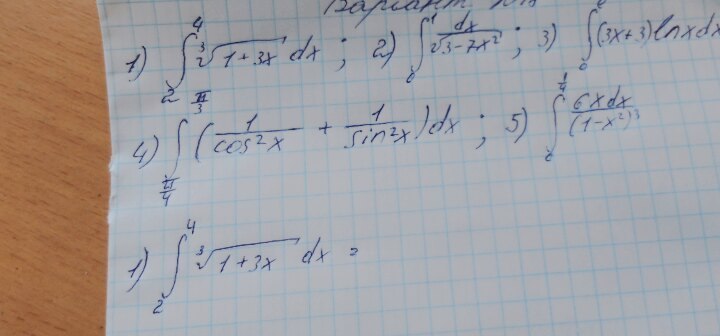 Вариант
1) ∫₂⁴ ∛(1+3x) dx ; 2) ∫₀¹ dx/√(3-7x²) ; 3) ∫ (3x+3)lnxdx
4) ∫_{π/4}^{π/3} (1/cos²x + 1/sin²x)dx ; 5) ∫₀^{1/4} 6xdx/(1-x²)³
1) ∫₂⁴ ∛(1+3x) dx =